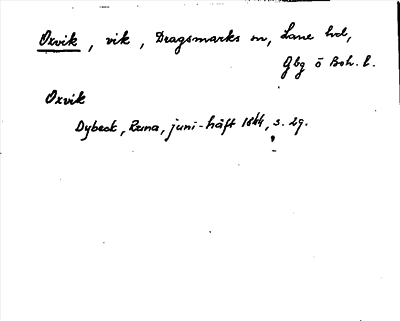 Oxvik, vik, Dragsmarks sn, Lane hd,
Gbg o Boh. l.
Oxvik
Dybeck, Runa, juni-häft 1844, s. 29.